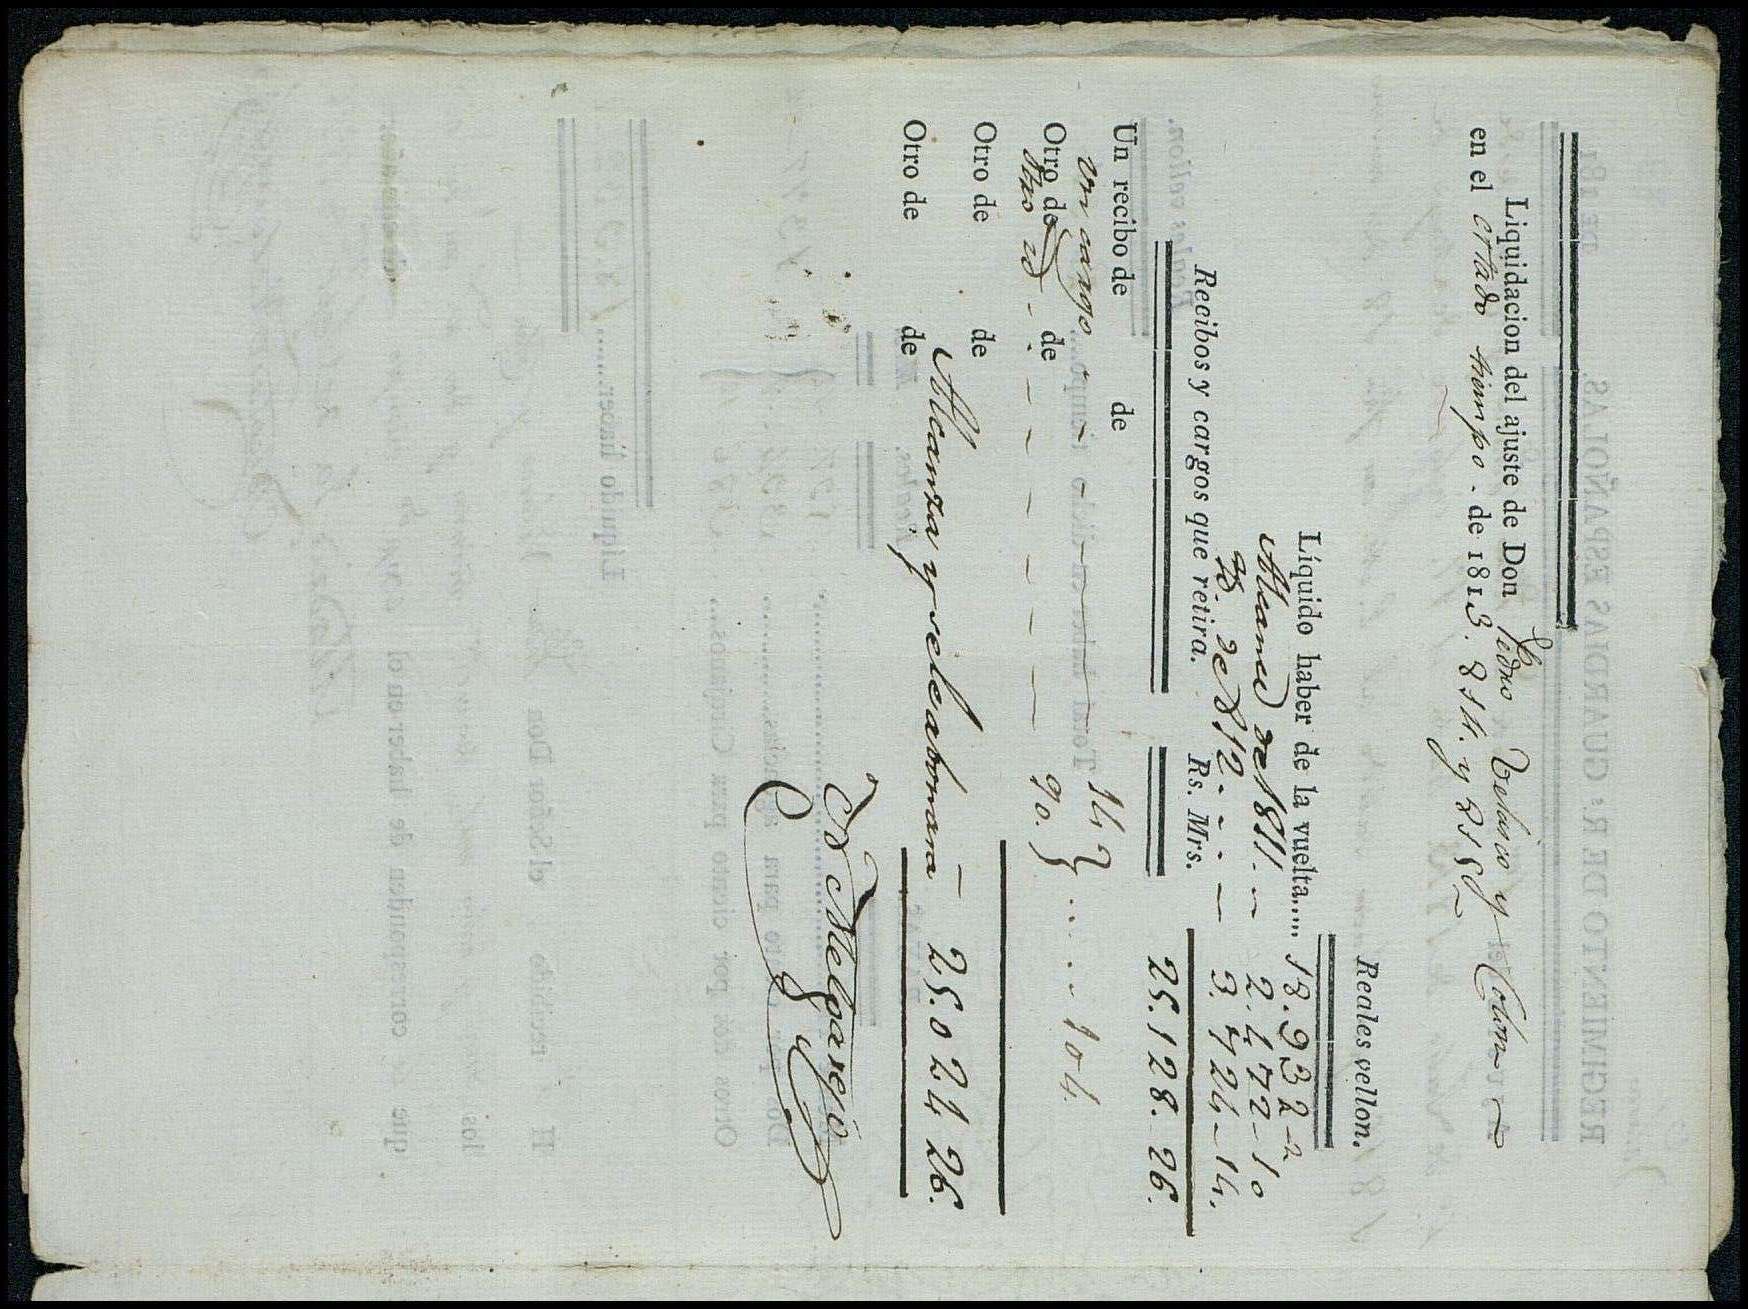 Liquidacion del ajuste de Don Pedro Velasco y Coloma
en el citado tiempo - de 1813. 814. y 815
Reales vellon.
Líquido haber de la vuelta..... 18.932-2
Alcance de 1811. -- 2.472-10
Yd. de 812. - . - 3.724-14.
Recibos y cargos que retira. Rs. Mrs.
25.128. 26.
Un recibo de de
un cargo - - - - - - 14
Otro de de
Otro id - - - - - - - 90. } ..... 104.
Otro de de
Alcanza y se le abonan - 25.024 26.
Otro de de
Melgarejo